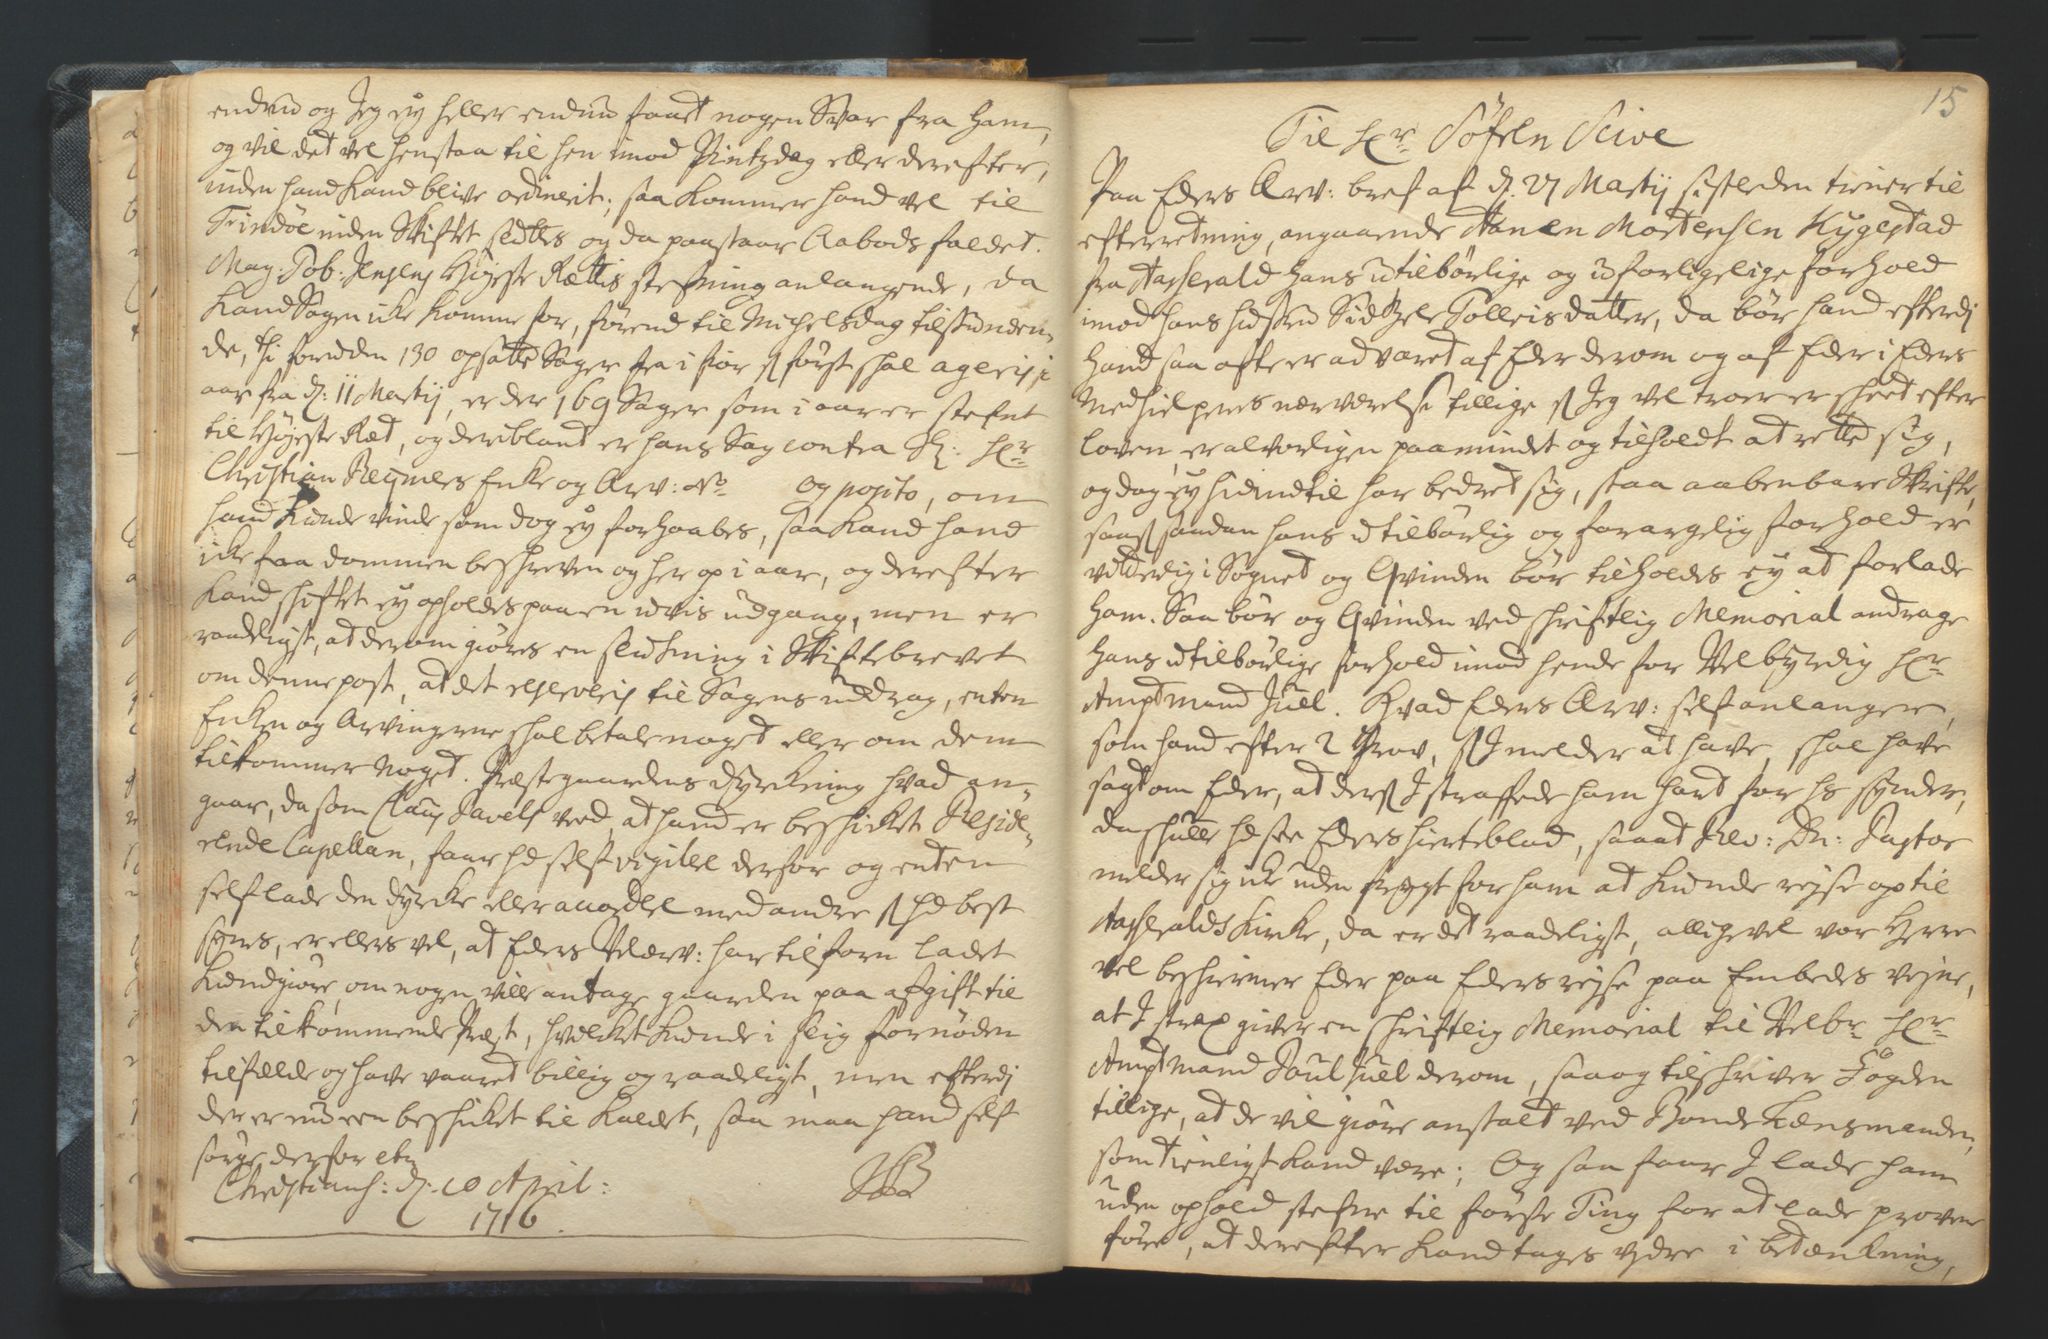 endnu og Jeg ey heller endnu faaet nogen Svar fra ham,
og vil det vel henstaa til hen imod Pintzdag eller derefter,
inden hand kand blive ordinerit; saa kommer hand vel til
Trindöe inden Skiftet sidttes og da paastaar Aabods faldet.
Mag: Tob: Jensens Høyeste Rættis stefning anlangende, da
kand Sagen icke komme for, førend til Michelsdag tilstundende,
de, thi foruden 130 opsatte Sager fra i fior som først skal ageris i
aar fra d: 11 Martij, er der 169 Sager som i aar er stefnt
til Høyeste Ræt, og der iblant er hans Sag contra Sl: Hr
Christian Regners Enke og Arv: No og posito, om
hand kunde vinde som dog ey forhaabes, saa kand hand
icke faa dommen beskreven og her op i aar, og derefter
kand skiftet ey opholdes paa en uvis udgang, men er
raadeligst, at derom giøres en slutning i Skiftebrevet
om denne post, at det reserveris til Sagens uddrag, enten
Enken og Arvingerne skal betale noget eller om dem
tilkommer noget. Præstegaardens dyrckning hvad an-
gaar, da som Claus Pavels veed, at hand er beskicket Resid-
erende Capellan, faar hd self vigilere derfor og enten
self lade den dyrcke eller accordere med andre som hd best
synes, er ellers vel, at Eders Velærv: har tilforn ladet
kundgiøre, om nogen ville antage gaarden paa afgift til
den tilkommende Præst, hvilcket kunde i slig fornøden
tilfælde og have vaaret billig og raadeligt, men efterdi
der er nu een beskicket til Kaldet, saa maa hand self
sørge derfor etc
Christians: d: 10 April:
1716.
15
Til Hr Søfren Seive
Paa Eders Ærv: bref af d: 27 Martij sistleden tiener til
efterretning, angaaende Hanen Mortensen Kygestad
fra Aasserald hans utilbørlige og uforligelige forhold
imod hans hustru Sidtzele Tolleisdatter, da bør hand efterdi
hand saa ofte er advaret af Eder derom og af Eder i Eders
Medhielperes nærværelse tillige som Jeg vel troer er skeet efter
loven, er alvorligen paamindt og tilholdt at rette sig,
og dog ey hidindtil har bedret sig, staa aabenbare Skrifte,
saasom saadan hans utilbørlig og forargelig forhold er
vitterlig i Sognet og Qvinden bør tilholdes ey at forlade
ham. Saa bør og Qvinden ved skriftlig Memorial andrage
hans utilbørlige forhold imod hende for Velbyrdig Hr
Amptmand Juel. Hvad Eders Ærv: self anlanger,
som hand efter 2 Prov, som I melder at have, skal have
sagt om Eder, at dersom I straffede ham hart for hs synder,
da skulle hd see Eders hierteblod, saa at Rev: Dn: Pastor
melder sig icke uden frygt for ham at kunde reyse op til
Aasseralds Kircke, da er det raadeligst, alligevel vor Herre
vel beskiermer Eder paa Eders reyse paa Embeds vejne,
at I strax giver en skriftlig Memorial til Velbr Hr
Amptmand Poul Juel derom, saa og tilskriver Fogden
tillige, at de vil giøre anstalt ved Bonde Lensmanden,
som tienligst kand være; Og saa faar I lade ham
uden ophold stefne til første Ting for at lade proven
føre, at derefter kand tages ydre i betænkning,